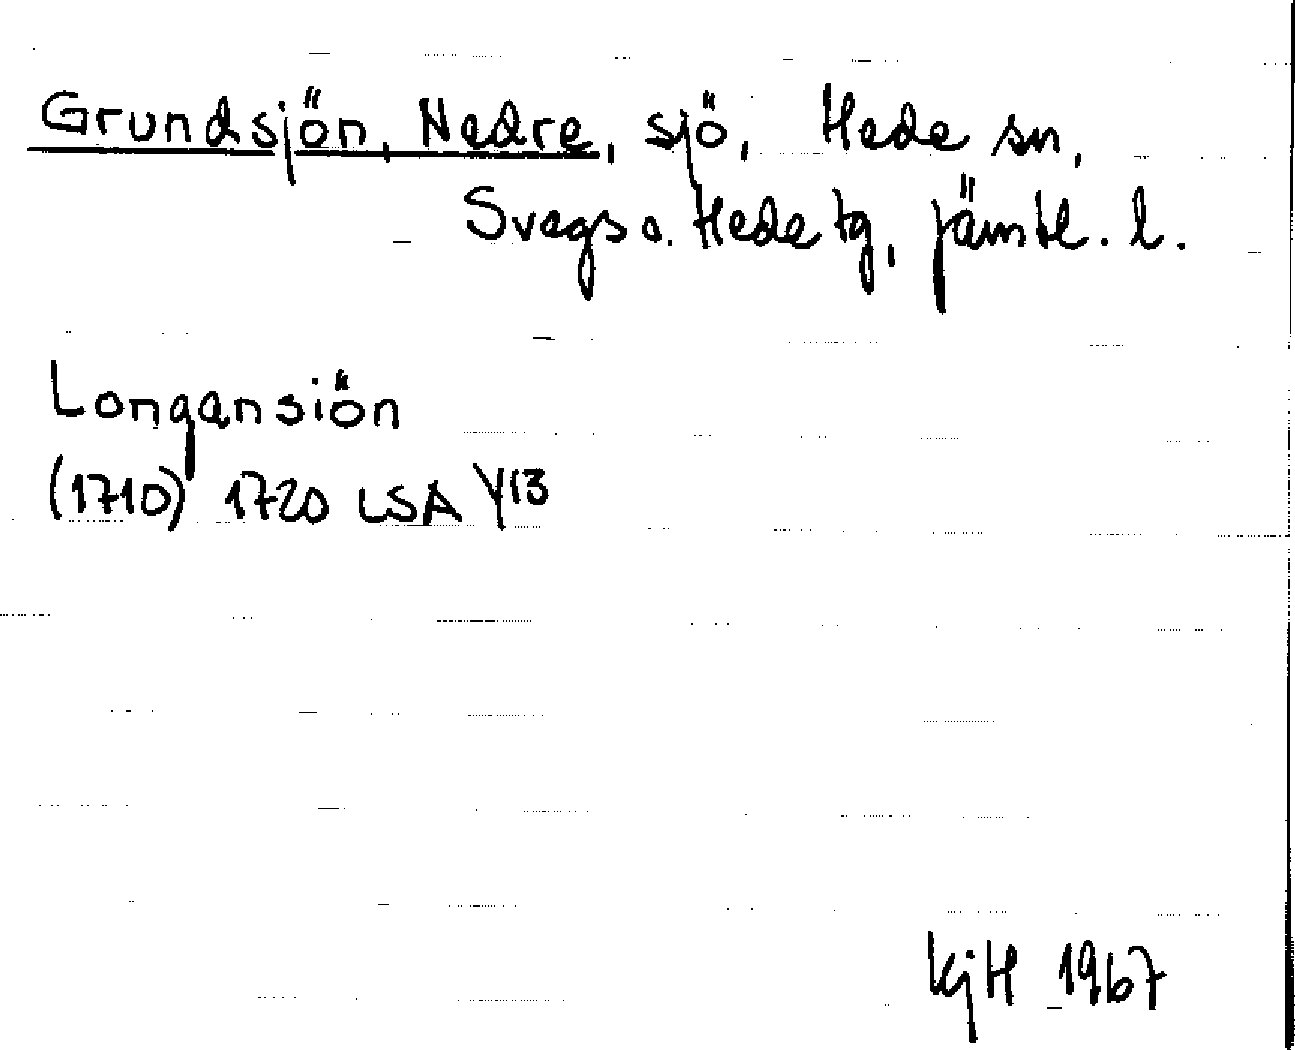 Grundsjön, Nedre, sjö, Hede sn,
Svegs o. Hede tg, Jämtl. l.
Longansiön
(1710) 1720 LSA Y13
KjH 1967